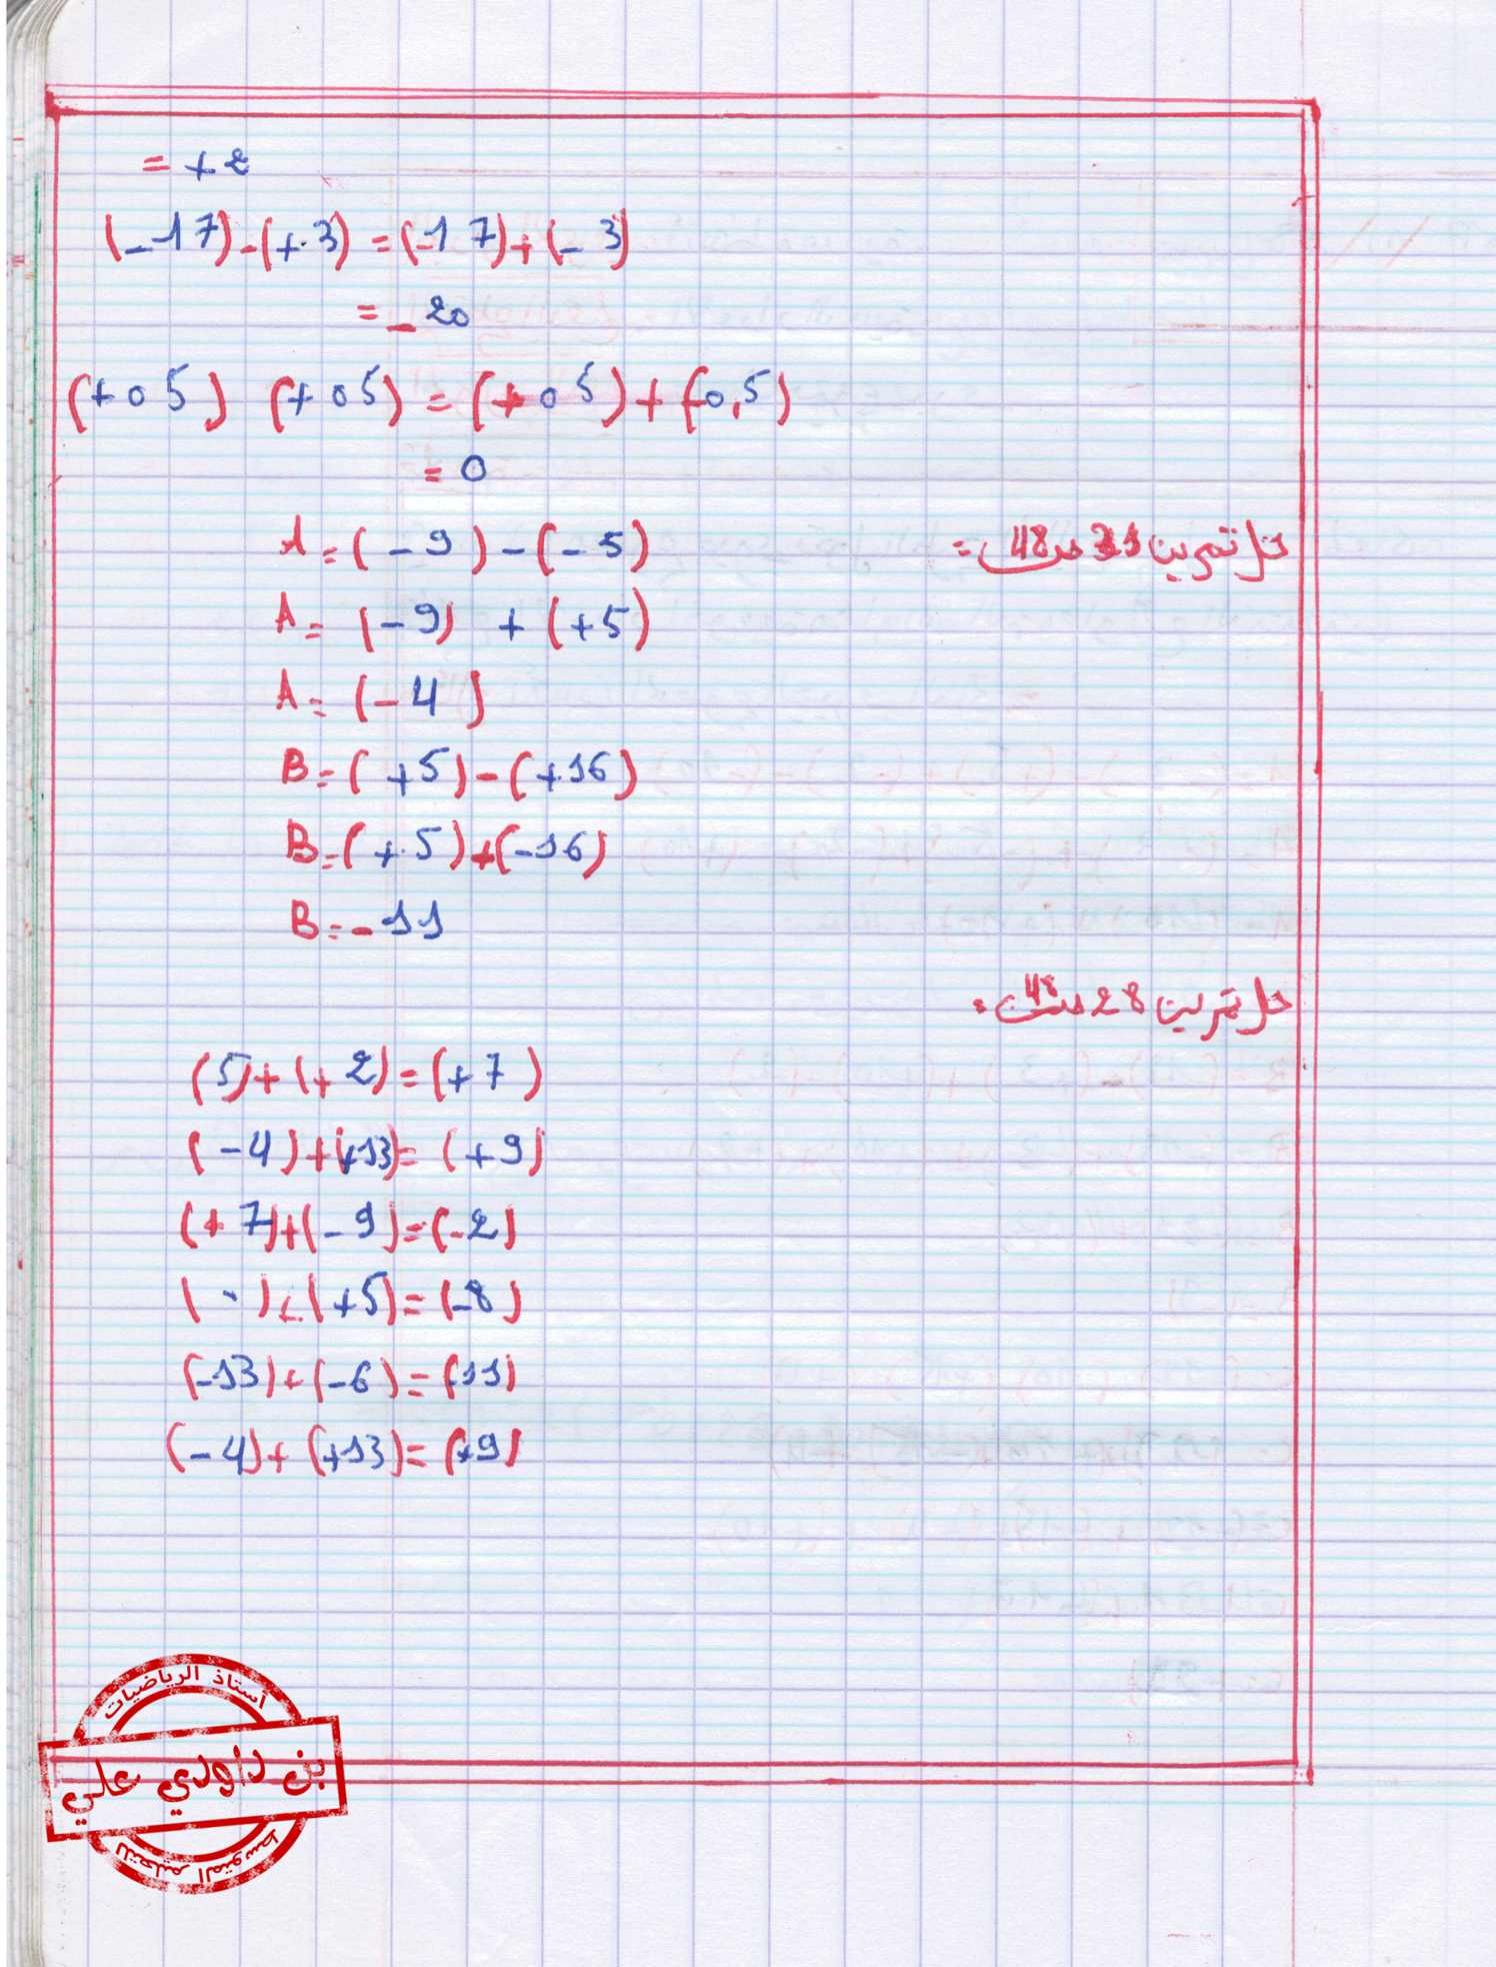 = +2
(-17)-(+3) = (-17)+(-3)
= -20
(+0 5) (+0 5) = (+0 5)+(-0,5)
= 0
حل تمرين 31 ص 48 =
A = (-9)-(-5)
A = (-9) + (+5)
A = (-4)
B = (+5)-(+16)
B = (+5)+(-16)
B = -11
حل تمرين 28 ص 48 =
(5)+(+2)=(+7)
(-4)+(+13)=(+9)
(+7)+(-9)=(-2)
(-)+(+5)=(-8)
(-13)+(-6)=(11)
(-4)+(+13)=(+9)
أستاذ الرياضيات
بن داودي علي
للتعليم المتوسط